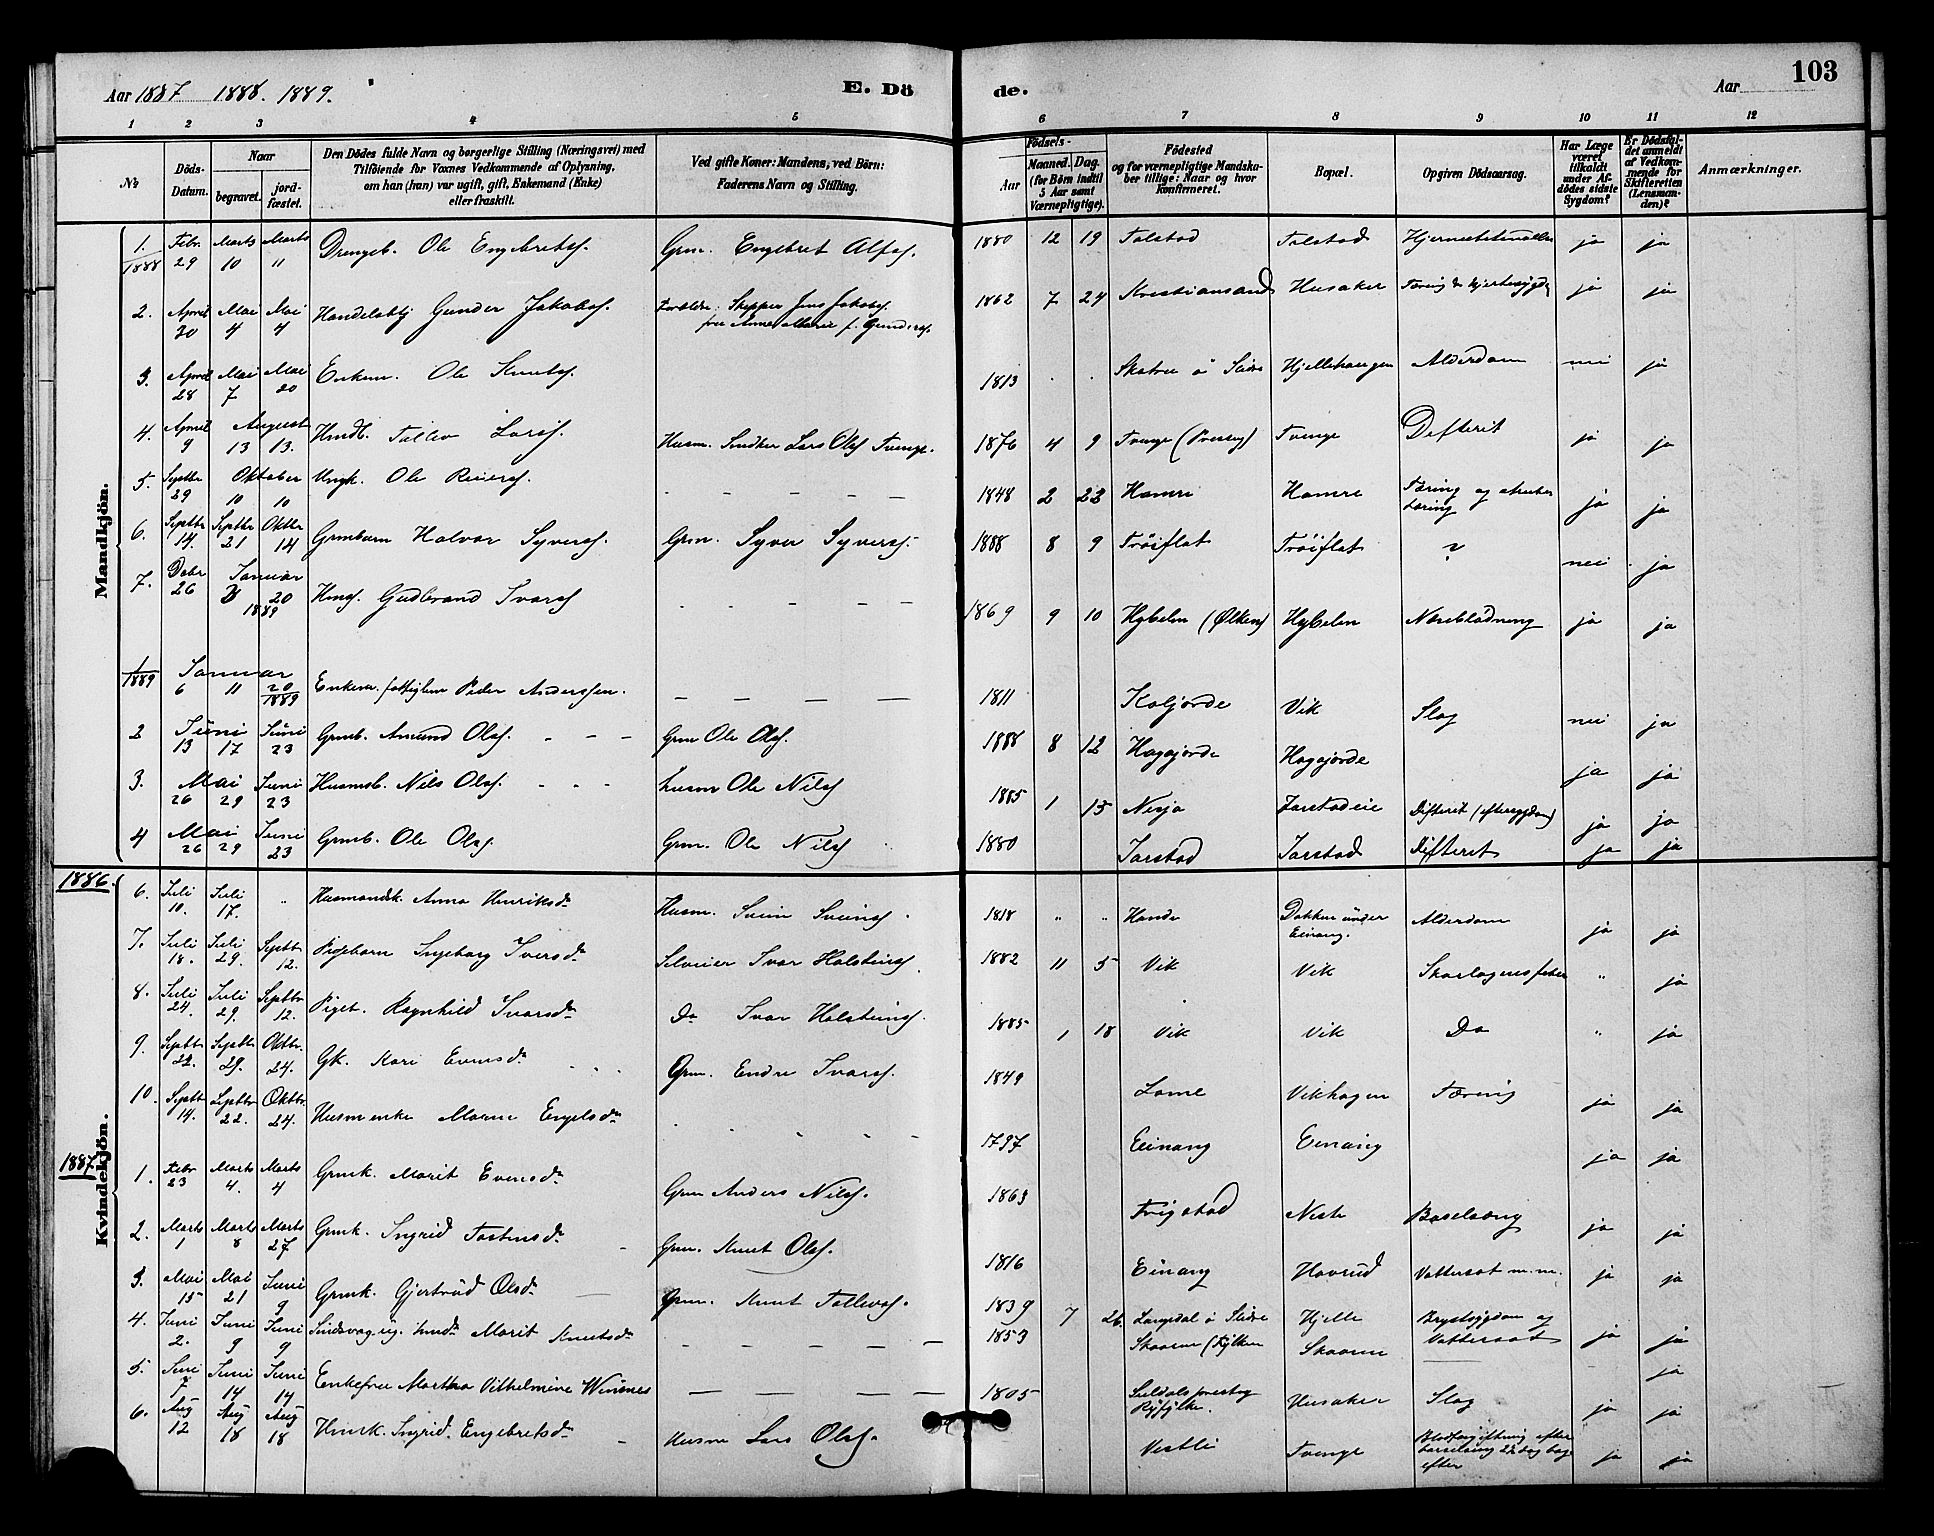 Aar 1887 1888. 1889.
E. Dö
de.
Aar
103
1 2 3 4 5 6 7 8 9 10 11 12
№
Döds-Datum.
Naar
begravet.
jord-fæstet.
Den Dödes fulde Navn og borgerlige Stilling (Næringsvei) med
Tilföiende for Voxnes Vedkommende af Oplysning,
om han (hun) var ugift, gift, Enkemand (Enke)
eller fraskilt.
Ved gifte Koner: Mandens, ved Börn:
Faderens Navn og Stilling.
Födsels-
Aar
Maaned. Dag.
(for Börn indtil
5 Aar samt
Værnepligtige).
Födested
og for værnepligtige Mandska-
ber tillige: Naar og hvor
konfirmeret.
Bopæl.
Opgiven Dödsaarsag.
Har Læge
været
tilkaldt
under Af-
dödes sidste
Sygdom?
Er Dödsfal-
det anmeldt
af Vedkom-
mende for
Skifteretten
(Lensman-
den)?
Anmærkninger.
Mandkjön.
1./1888 Febr. 29 Marts 10 Marts 11 Drengeb. Ole Engebrets. Grm. Engebret Alfs. 1880 12 19 Tolstad Tolstad ja ja
2. April 20 Mai 4 Mai 4 Gunder Jakobs. Forældre: Skipper Jens Jakobs. 1862 7 24 Kristiansand Husaker Tæring ja ja
3. April 28 Mai 7 Mai 20 Enkem. Ole Knuts. 1813 Slidre Hjellehaugen Alderdom nei ja
4. April 9 August 13 13. Tollev Lars. Husm. Lars Ols. Tvenge. 1876 4 9 Tvenge Tvenge Difterit ja ja
5. Septbr 29 Oktober 10 10 Ungk. Ole Reiers. 1848 2 23 Hamre Hamre Tæring og ja ja
6. Septbr 14. Septbr 21 Oktbr 14 Grmbarn Halvor Syvers. Grm. Syver Syvers. 1888 8 9 Tröiflat Tröiflat ? nei ja
7. Debr 26 Januar 20 1889 Gudbrand Ivars. 1869 9 10 Hybelen Hybelen Næseblödning ja ja
1/1889 Januar 6 11 20/1889 Enkem. Peder Anderssen. 1811 Koljorde Vik Slag nei ja
2 Juni 13 17 Juni 23 Grmb. Amund Ols. Grm Ole Ols. 1888 8 12 Hagajorde Hagajorde ja ja
3. Mai 26 29 Juni 23 Husmb. Nils Ols. Husm Ole Nils. 1885 1 15 Nesja Jarstadeie Difterit ja ja
4 Mai 26 29 Juni 23 Grmb. Ole Ols. Grm. Ole Nils. 1880 Jarstad Jarstad Difterit ja ja
1886.
Kvindekjön.
6. Juli 10. Juli 17. „ Husmandsk. Anna Henriksdr Husm. Svein Sveins. 1818 „ „ Hande Dokken under Einang. Alderdom ja ja
7. Juli 18. Juli 29. Septbr 12. Pigebarn Ingeborg Ivarsdr Selveier Ivar Halsteins. 1882 11 5 Vik Vik Skarlagensfeber „ ja
8. Juli 24. Juli 29. Septbr 12. Piget. Ragnhild Ivarsdr Do Ivar Halsteins. 1885 1 18 Vik Vik Do „ ja
9. Septbr 22. Septbr 29. Oktbr. 24. Gk. Kari Evensdr Grm. Endre Ivars. 1849 Lome Vikhagen Tæring ja ja
10. Septbr 14. Septbr 22. Oktbr 24. Husmenke Marie Engelsdr 1797 Einang Einang ja ja
1887.
1. Febr 23 Marts 4. Marts 4 Grmk. Marit Evensdr Grm Anders Nils. 1863 Frigstad Neste Barselseng ja ja
2. Marts 1 Marts 8 Marts 27 Grmk. Ingrid Tostensdr Grm. Knut Ols. 1816 Einang Havrud Vattersot m. m. ja ja
3. Mai 15 Mai 21 Juni 9 Grmk. Gjertrud Olsdr Grm. Knut Tollevs. 1839 7 26. i Slidre Hjelle Brystsygdom og Vattersot ja ja
4. Juni 2. Juni 9 Juni 9 Marit Knutsdr 1853 Skaarne ja
5. Juni 7 Juni 14 Juni 14 Enkefru Martha Vilhelmine Winsnes 1805 Suldals presteg Ryfylke. Husaker Slag ja ja
6. Aug 12 Aug 18 Aug 18 Hmk. Ingrid Engebretsdr Husm Lars Ols. Vestli Tvenge Blodforgiftning efter barselseng 22 dage efter ja ja